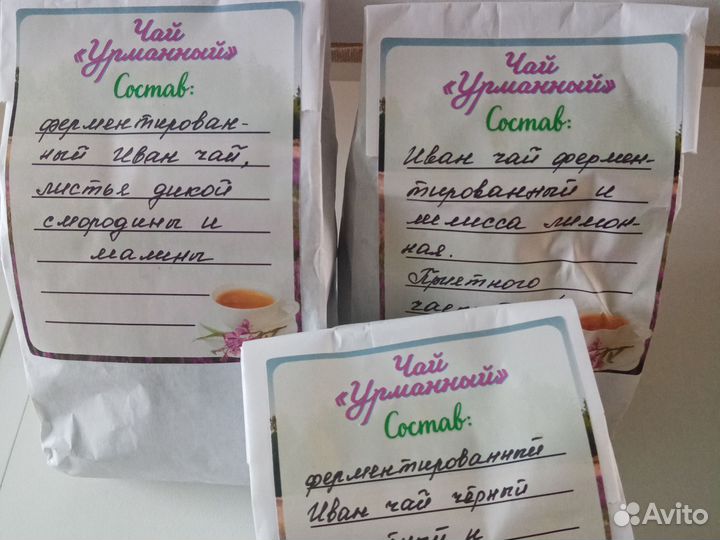 Чай
«Урманный»
Состав:
ферментирован-
ный Иван чай,
листья дикой
смородины и
малины
Чай
«Урманный»
Состав:
Иван чай фермен-
тированный и
мелисса лимон-
ная.
Приятного
Чай
«Урманный»
Состав:
ферментированный
Иван чай чёрный
и
Avito